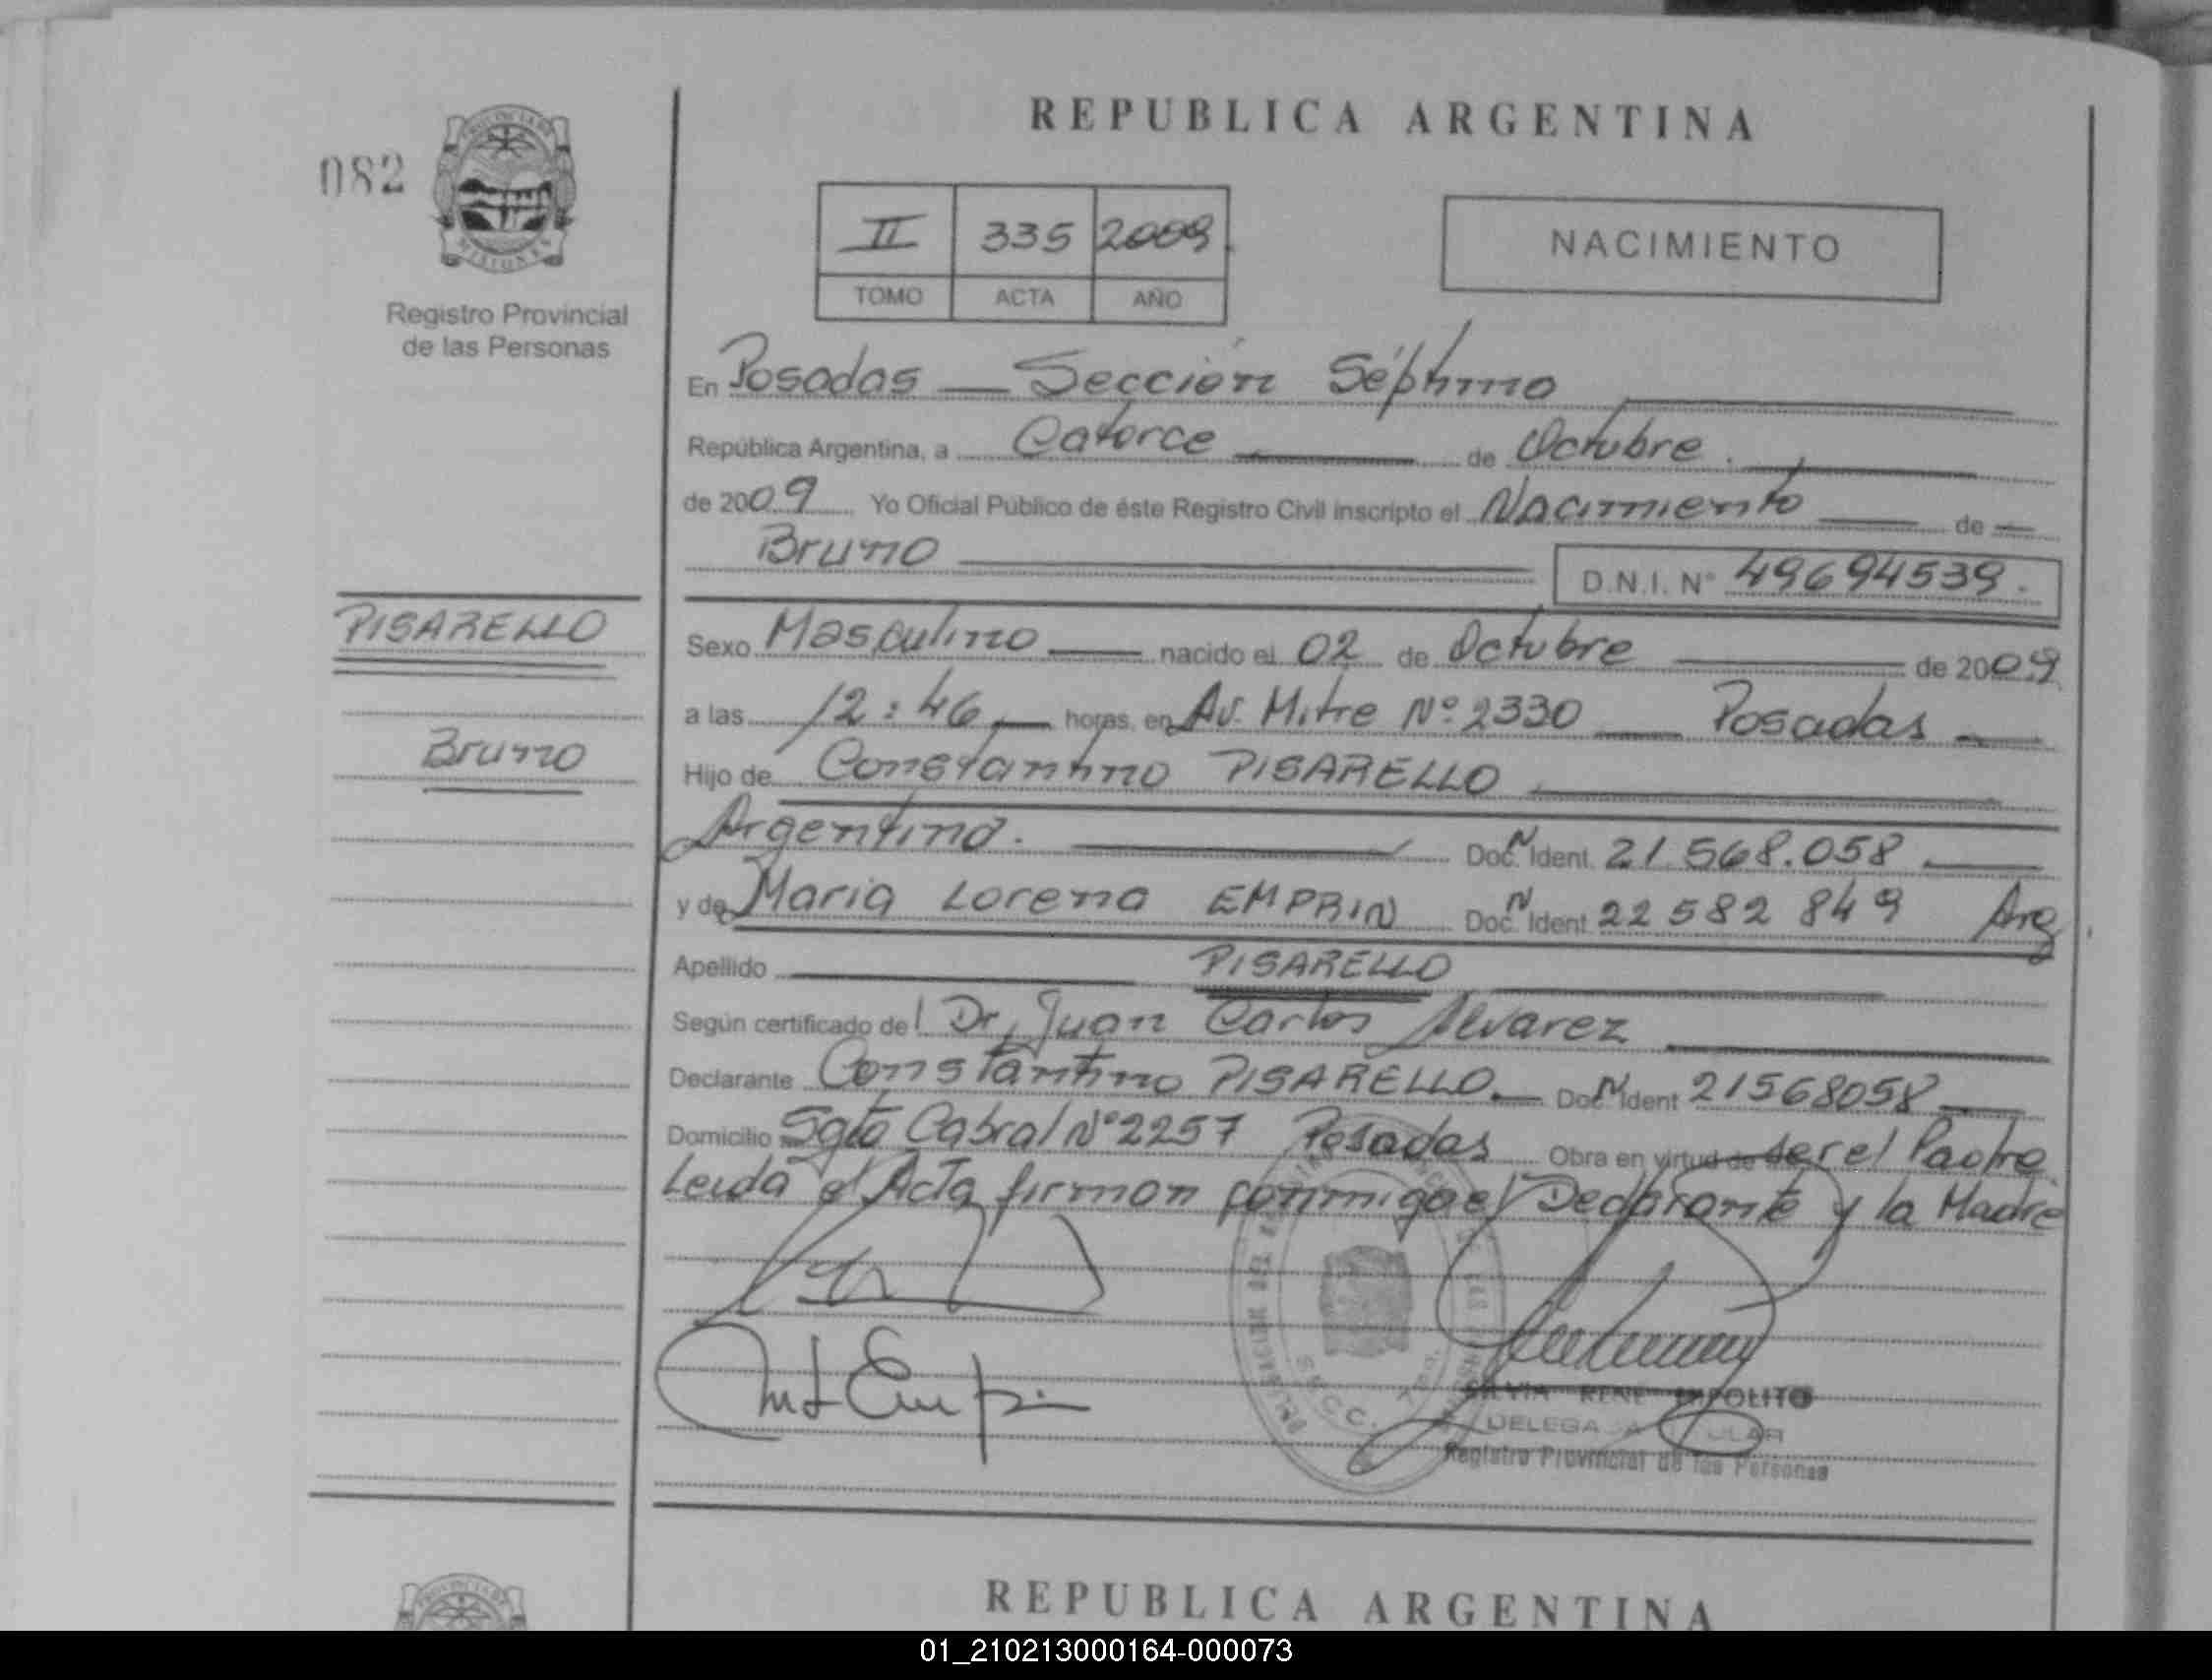 REPUBLICA ARGENTINA
082
PROVINCIA DE
MISIONES
Registro Provincial
de las Personas
II 335 2009
TOMO ACTA AÑO
NACIMIENTO
En Posadas — Sección Séptima
República Argentina, a Catorce de Octubre
de 2009 Yo Oficial Público de éste Registro Civil inscripto el Nacimiento de
Bruno
D.N.I. Nº 49694539.
PISARELLO
Bruno
Sexo Masculino nacido el 02 de Octubre de 2009
a las 12:46 horas, en Av. Mitre Nº 2330 Posadas
Hijo de Constantino PISARELLO
Argentino. Doc. N Ident. 21.568.058
y de Maria Lorena EMPRIN Doc. N Ident. 22 582 849 Arg
Apellido PISARELLO
Según certificado del Dr. Juan Carlos Alvarez
Declarante Constantino PISARELLO Doc. N Ident 21568058
Domicilio Sgto Cabral Nº 2257 Posadas Obra en virtud de ser el Padre
Leida el Acta firman conmigo el Declarante y la Madre
SILVIA RENE IMPOLITO
DELEGADA TITULAR
Registro Provincial de las Personas
REPUBLICA ARGENTINA
01_210213000164-000073